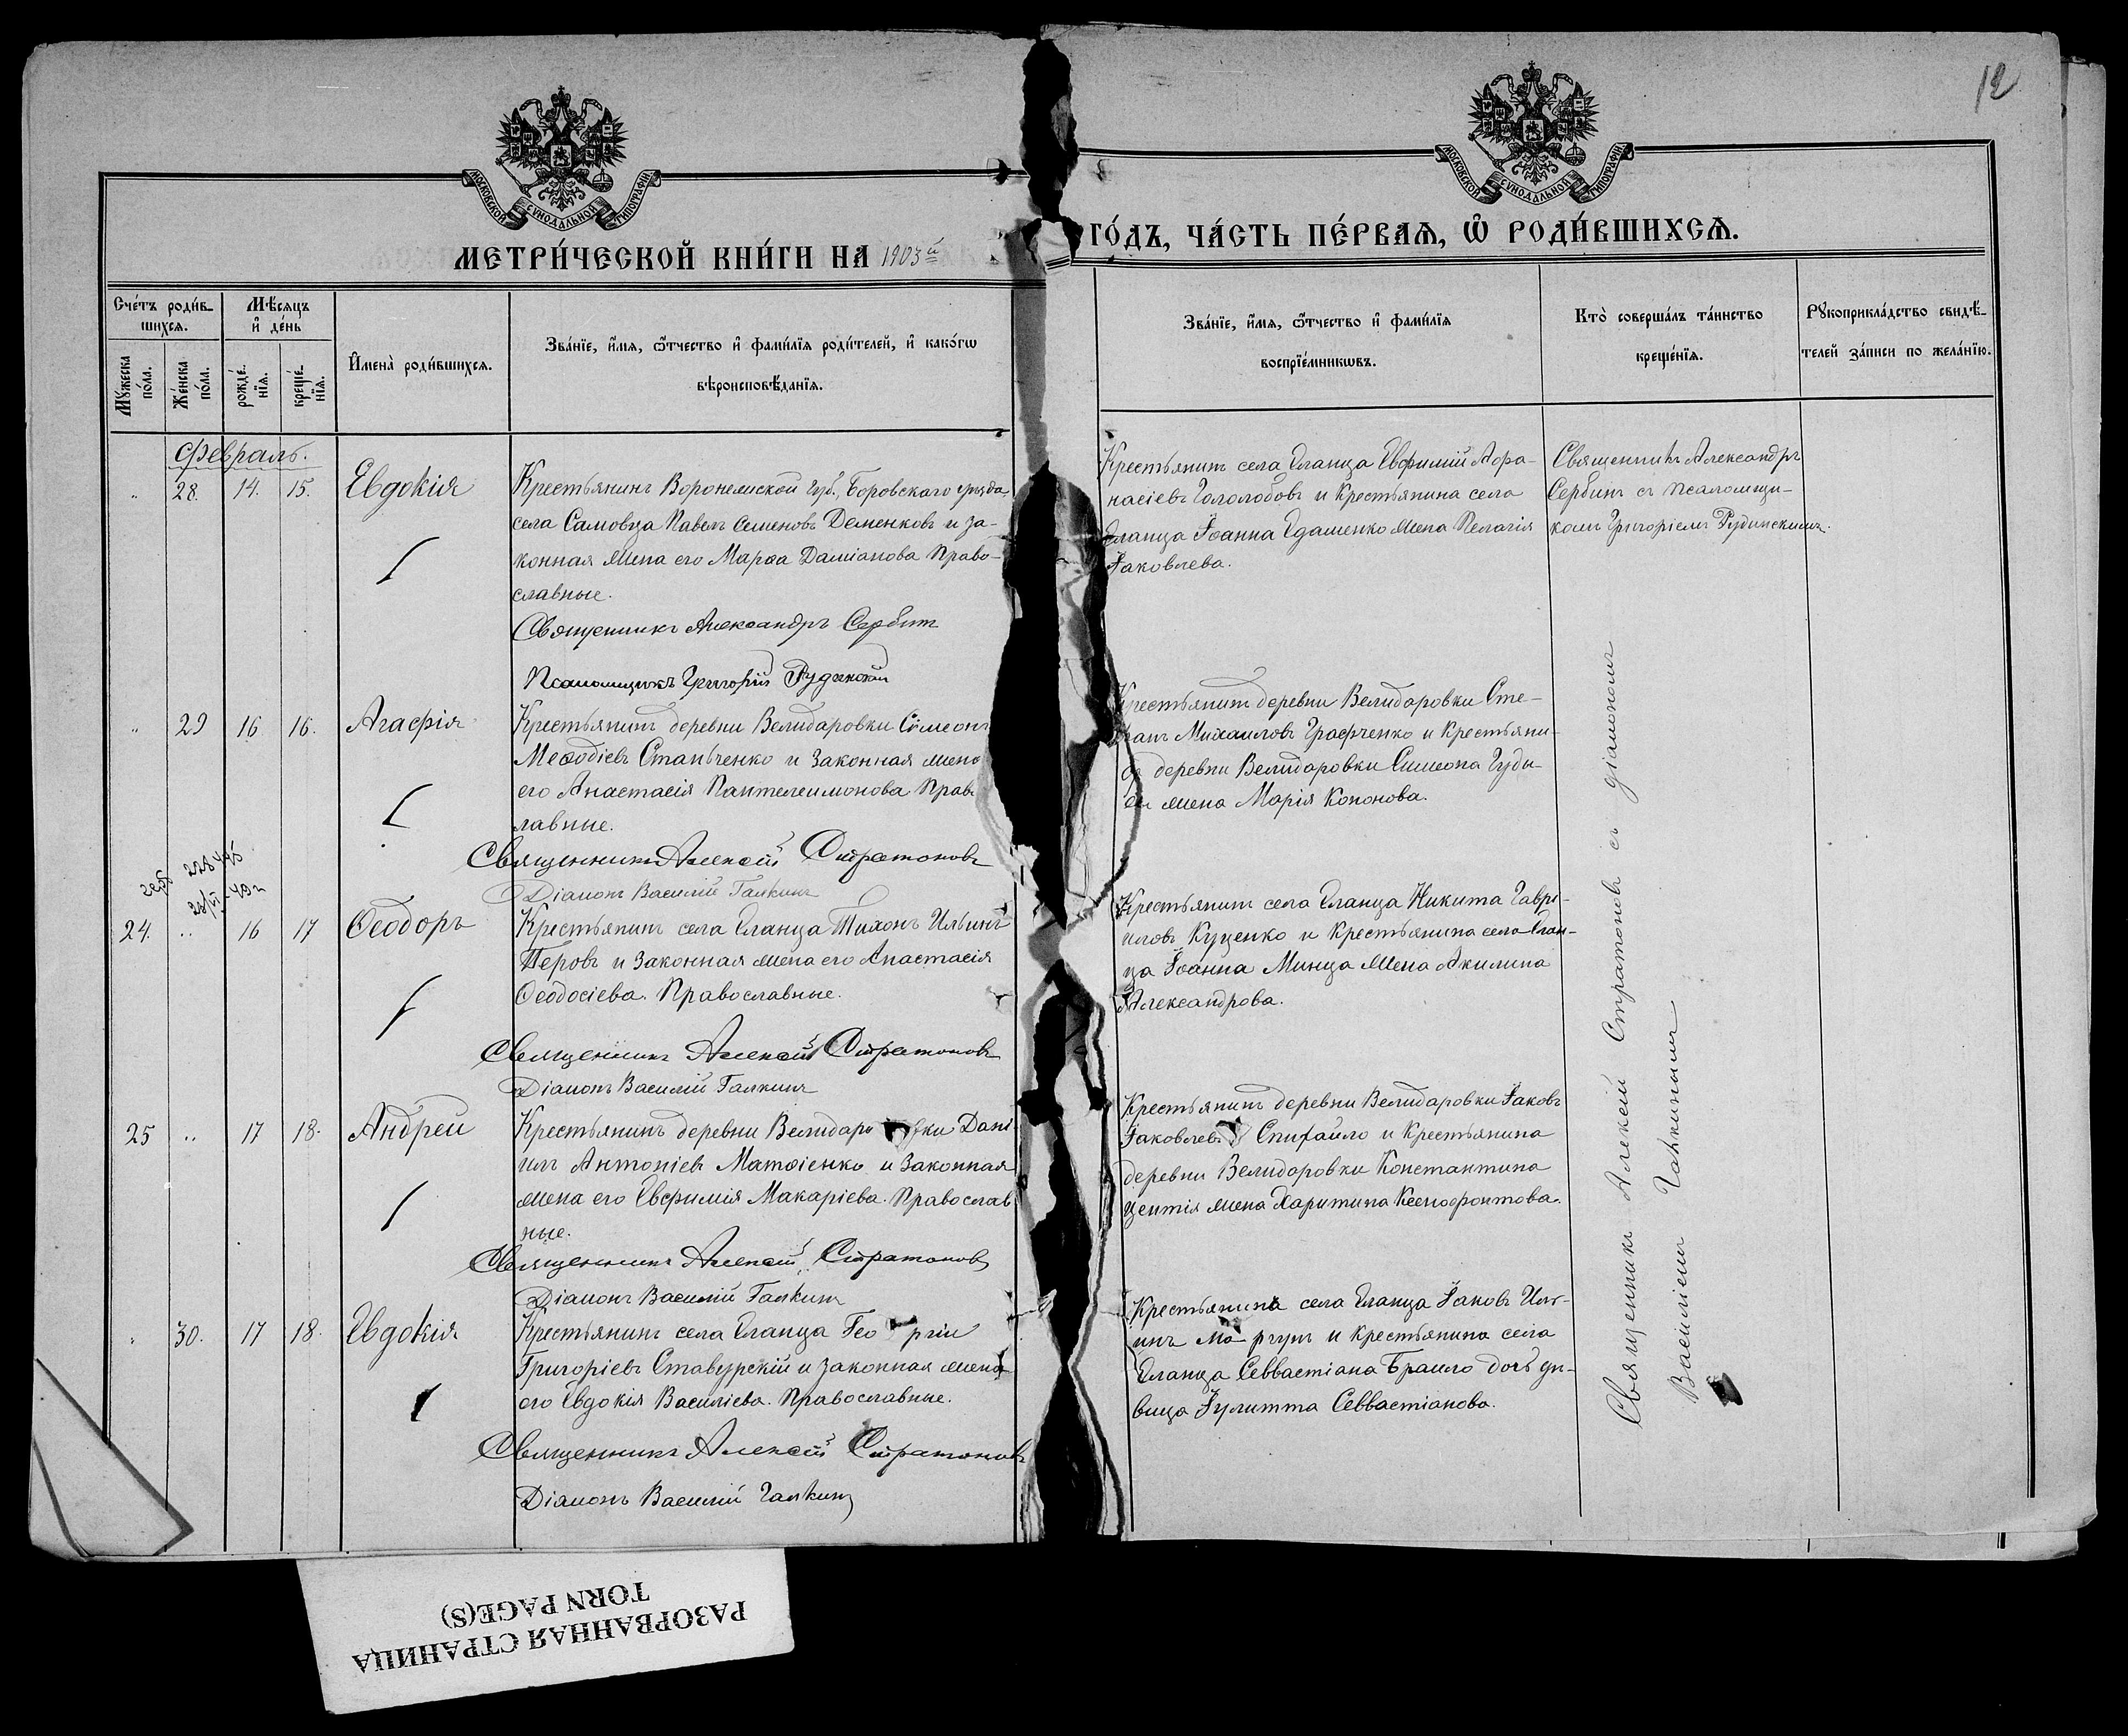 12
МОСКОВСКОЙ СѴНОДАЛЬНОЙ ТИПОГРАФІИ
МОСКОВСКОЙ СѴНОДАЛЬНОЙ ТИПОГРАФІИ
МЕТРИ́ЧЕСКОЙ КНИ́ГИ НА 1903й ГО́ДЪ, ЧА́СТЬ ПЕ́РВАѦ, Ѡ҆ РОДИ́ВШИХСѦ.
Сче́тъ роди́в-
шихсѧ.
Мꙋ́жеска по́ла.
Же́нска по́ла.
Мѣ́сяцъ
и҆ де́нь
рожде́-
нїѧ.
креще́-
нїѧ.
И҆мена̀ роди́вшихсѧ.
Зва́нїе, и҆́мѧ, ѻ҆́тчество и҆ фами́лїѧ роди́телей, и҆ како́гѡ
вѣроисповѣ́данїѧ.
Зва́нїе, и҆́мѧ, ѻ҆́тчество и҆ фами́лїѧ
воспрїе́мникѡвъ.
Кто̀ соверша́лъ та́инство
креще́нїѧ.
Рꙋкоприкла́дство свидѣ́-
телей за́писи по жела́нїю.
Февраль.
„ 28. 14. 15. Евдокія
Крестьянинъ Воронежской губ., Боровского уѣзда,
села Самовца Павелъ Семеновъ Деменковъ и за-
конная жена его Марѳа Даміанова Право-
славные.
Священникъ Александръ Сербинъ
Псаломщикъ Григорій Рудинскій
Крестьянинъ села Еланца Евфимій Афа-
насіевъ Гололобовъ и Крестьянина села
Еланца Іоанна Едаменко жена Пелагія
Іаковлева.
Священникъ Александръ
Сербинъ съ псаломщи-
комъ Григоріемъ Рудинскимъ.
„ 29 16 16. Агафія
Крестьянинъ деревни Велидаровки Сѵмеонъ
Меѳодіевъ Стапченко и законная жена
его Анастасія Пантелеимонова Прав
лавные.
Священникъ Алексѣй Стратоновъ
Діаконъ Василій Галкинъ
Крестьянинъ деревни Велидаровки Сте-
фанъ Михаиловъ Графченко и Крестьяни-
деревни Велидаровки Симеона Гуди-
жена Марія Кононова.
24. „ 16 17 Ѳеодоръ
Крестьянинъ села Еланца Тихонъ Ильинъ
Перовъ и законная жена его Анастасія
Ѳеодосіева. Православные.
Священникъ Алексѣй Стратоновъ
Діаконъ Василій Галкинъ
Крестьянинъ села Еланца Никита Гаврі-
иловъ Куценко и Крестьянина села Елан-
ца Іоанна Минца жена Акилина
Александрова.
25 „ 17 18. Андрей
Крестьянинъ деревни Велидаровки Дані
илъ Антоніевъ Матѳіенко и законная
жена его Евфимія Макаріева. Православ
ные.
Священникъ Алексѣй Стратоновъ
Діаконъ Василій Галкинъ
Крестьянинъ деревни Велидаровки Іаковъ
Іаковлевъ Спифайло и Крестьянина
деревни Велидаровки Константина
жена Харитина Ксенофонтова.
„ 30. 17 18. Евдокія
Крестьянинъ села Еланца Георгій
Григоріевъ Ставурскій и законная жена
его Евдокія Василіева. Православные.
Священникъ Алексѣй Стратоновъ
Діаконъ Василій Галкинъ
Крестьянинъ села Еланца Іаковъ Иль-
инъ и Крестьянина села
Еланца Севвастіана Браило дочь дѣ-
вица Іулитта Севвастіанова.
Священникъ Алексій Стратоновъ съ діакономъ
Василіемъ Галкинымъ
РАЗОРВАННАЯ СТРАНИЦА
TORN PAGE(S)